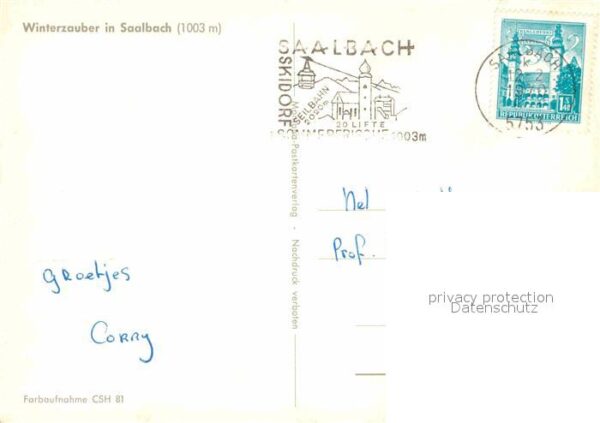 Winterzauber in Saalbach (1003 m)
SAALBACH
SKIDORF
SEILBAHN
2020m
20 LIFTE
SOMMERFRISCHE 1003m
SAALBACH
5753
REPUBLIK ÖSTERREICH
Postkartenverlag - Nachdruck verboten
Nel
Prof.
Groetjes
Corry
privacy protection
Datenschutz
Farbaufnahme CSH 81